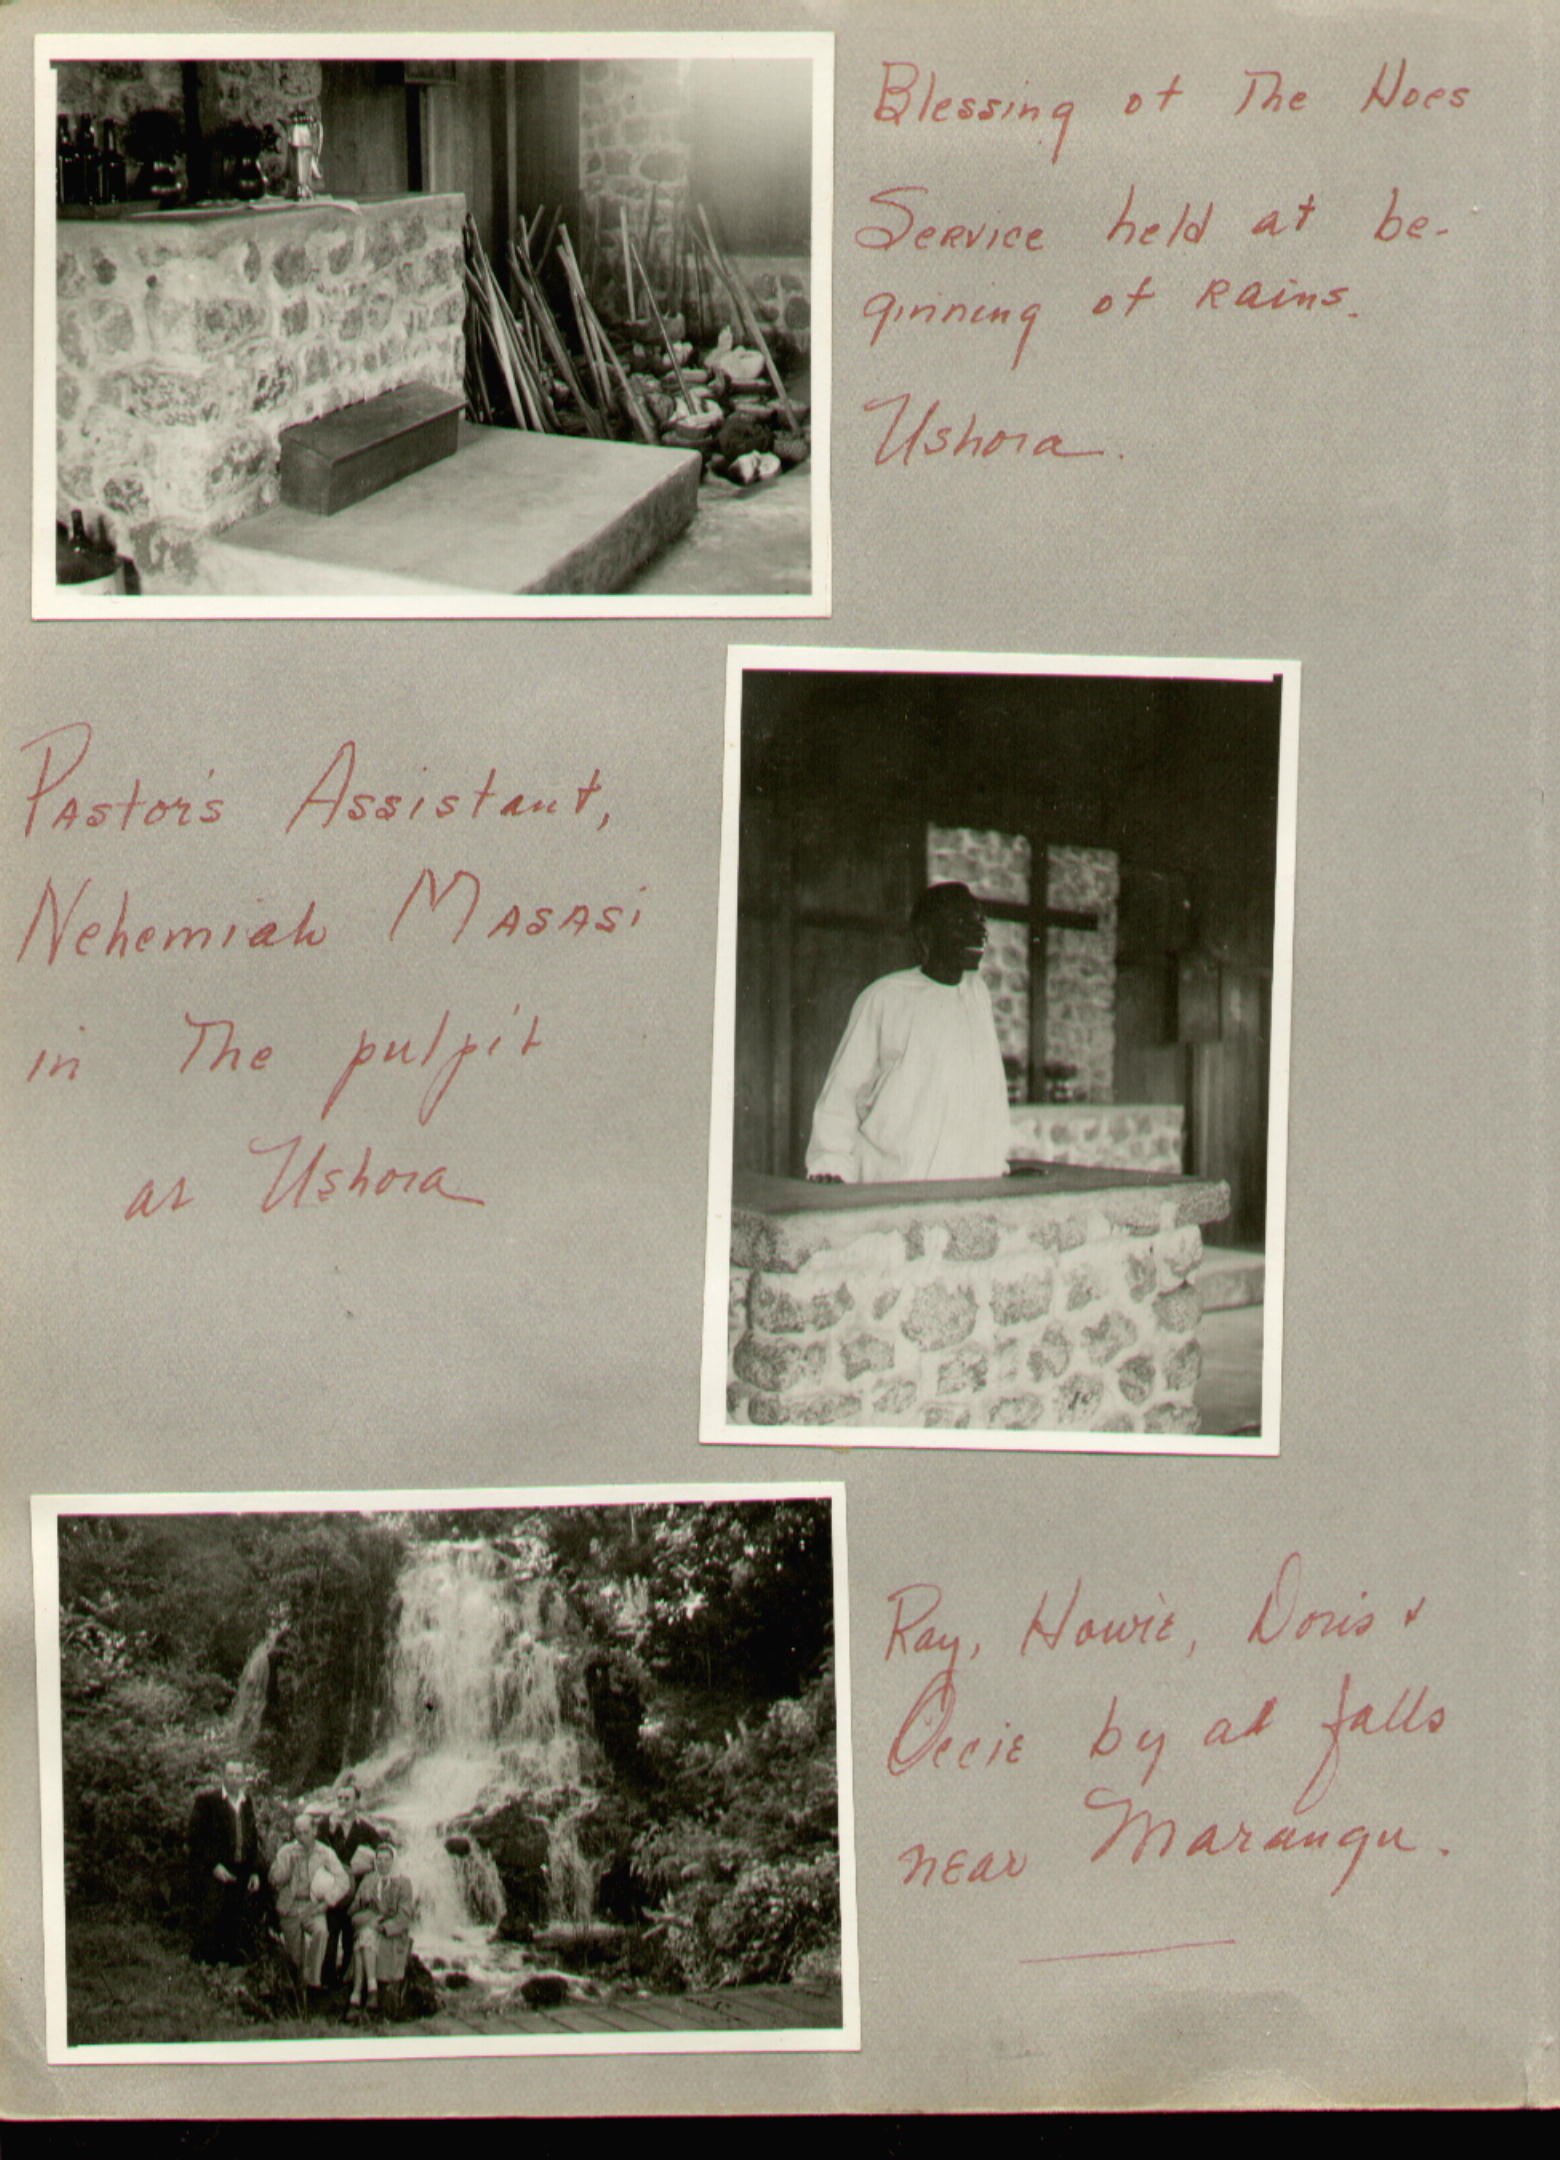 Blessing of The Hoes
Service held at be-
ginning of Rains.
Ushora.
Pastor's Assistant,
Nehemiah Masasi
in The pulpit
at Ushora
Ray, Howie, Doris &
Occie by at falls
near Marangu.